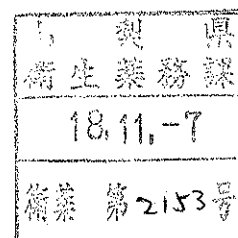 山梨県
衛生薬務課
18.11.-7
衛薬 第2153号